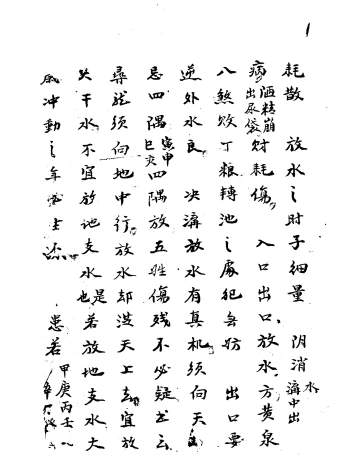 1
耗散 放水之时子细量 阴消水满中出
病酒精崩出尿候财耗傷 入口出口放水方黄泉
八煞敗丁粮轉池之處犯無妨 出口要
逆外水良 决溝放水有真机须向天
忌四隅寅申巳亥四隅放五姓傷残不必疑龙云
尋龙须向地中行放水却淡天上去宜放
天干水不宜放地支水也是若放地支水大
冲動之年必主 患若甲庚丙壬